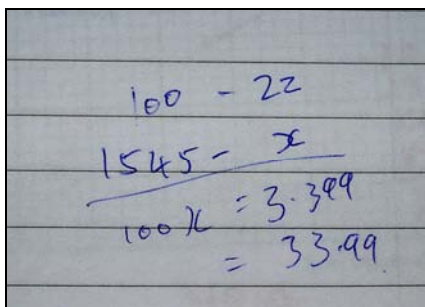 100 - 22
1545 - x
100x = 3.399
= 33.99